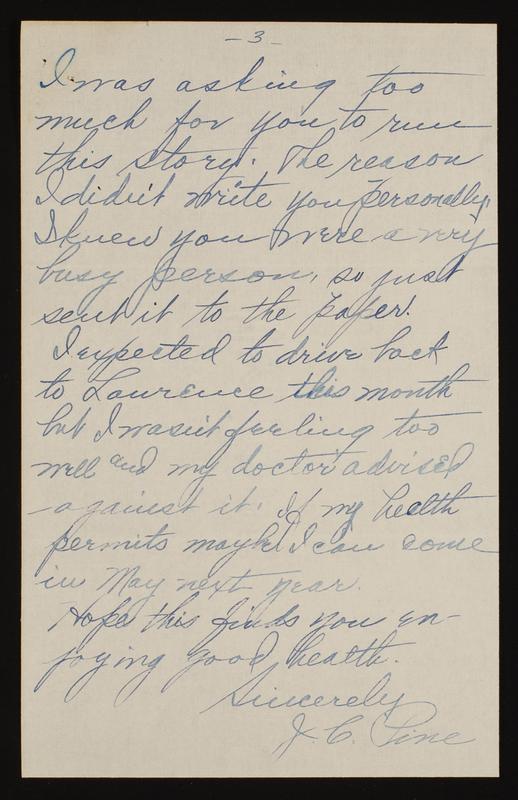 - 3 -
I was asking too
much for you to run
this story. The reason
I didn't write you personally,
I knew you were a very
busy person, so just
sent it to the paper.
I expected to drive back
to Laurence this month
but I wasn't feeling too
well and my doctor advised
against it. If my health
permits maybe I can come
in May next year.
Hope this finds you en-
joying good health.
Sincerely
J. C. Pine